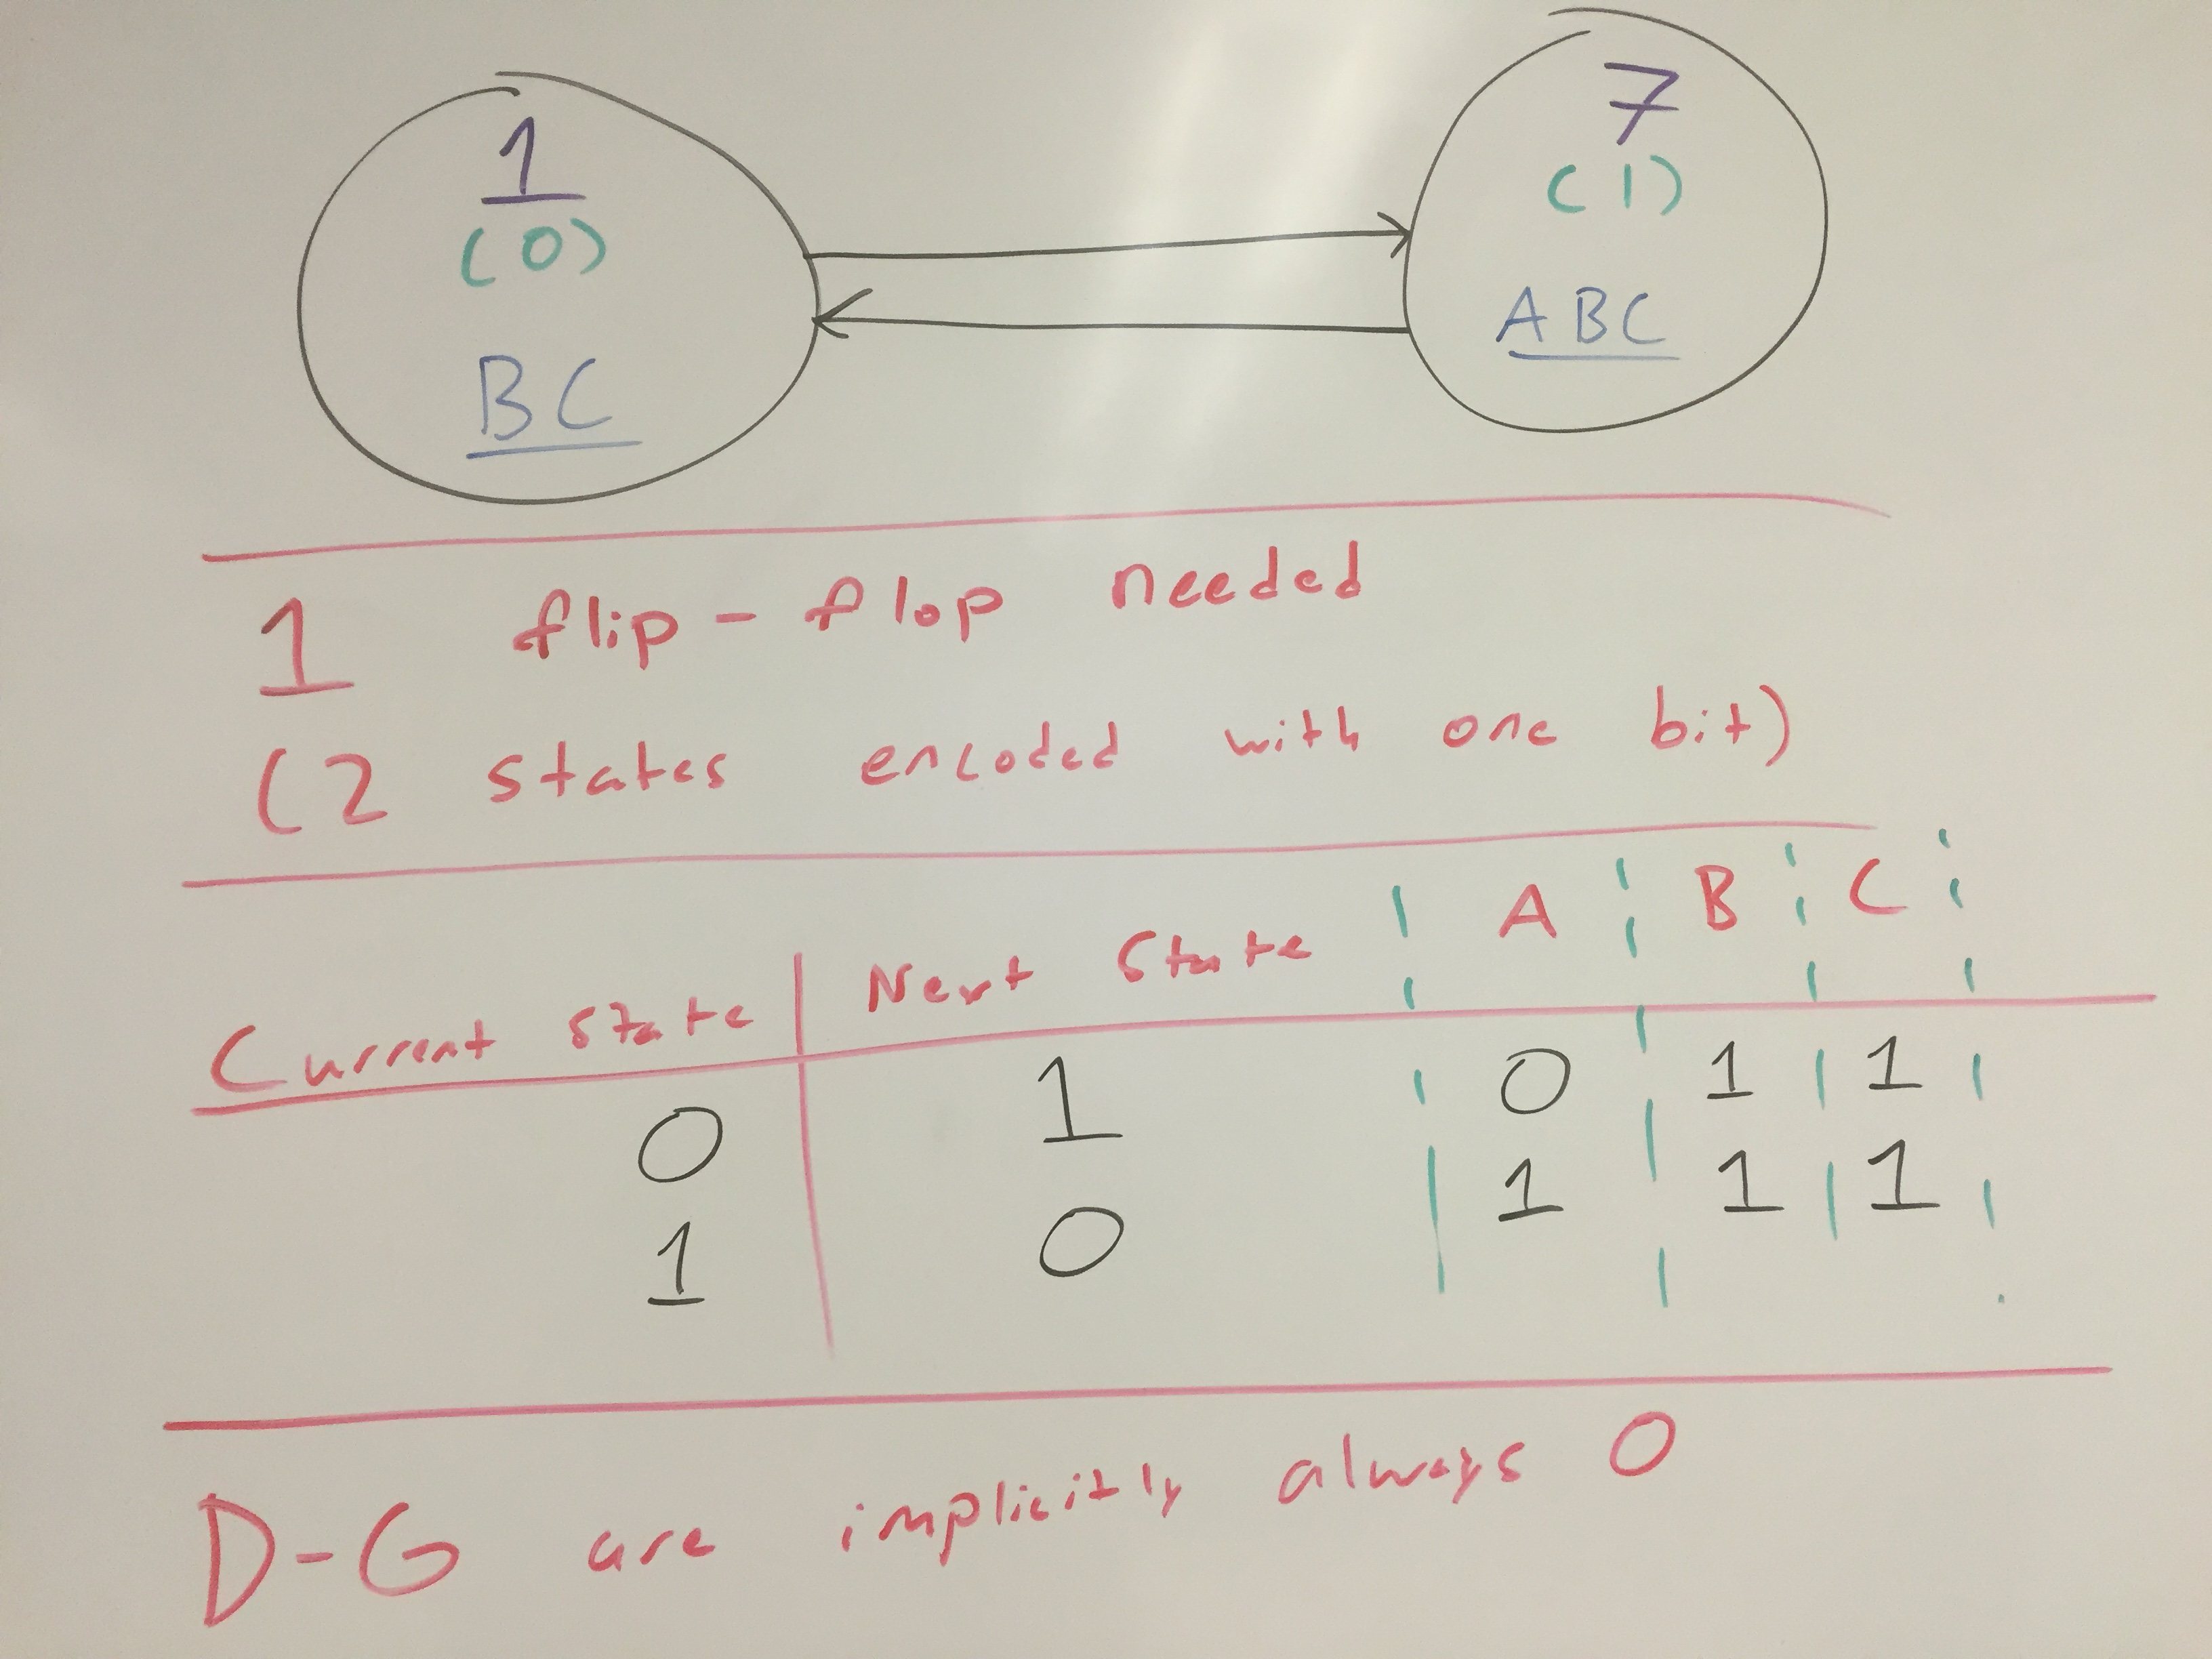 1
(0)
BC
7
(1)
ABC
1 flip-flop needed
(2 states encoded with one bit)
Current State Next State A B C
0 1 0 1 1
1 0 1 1 1
D-G are implicitly always 0